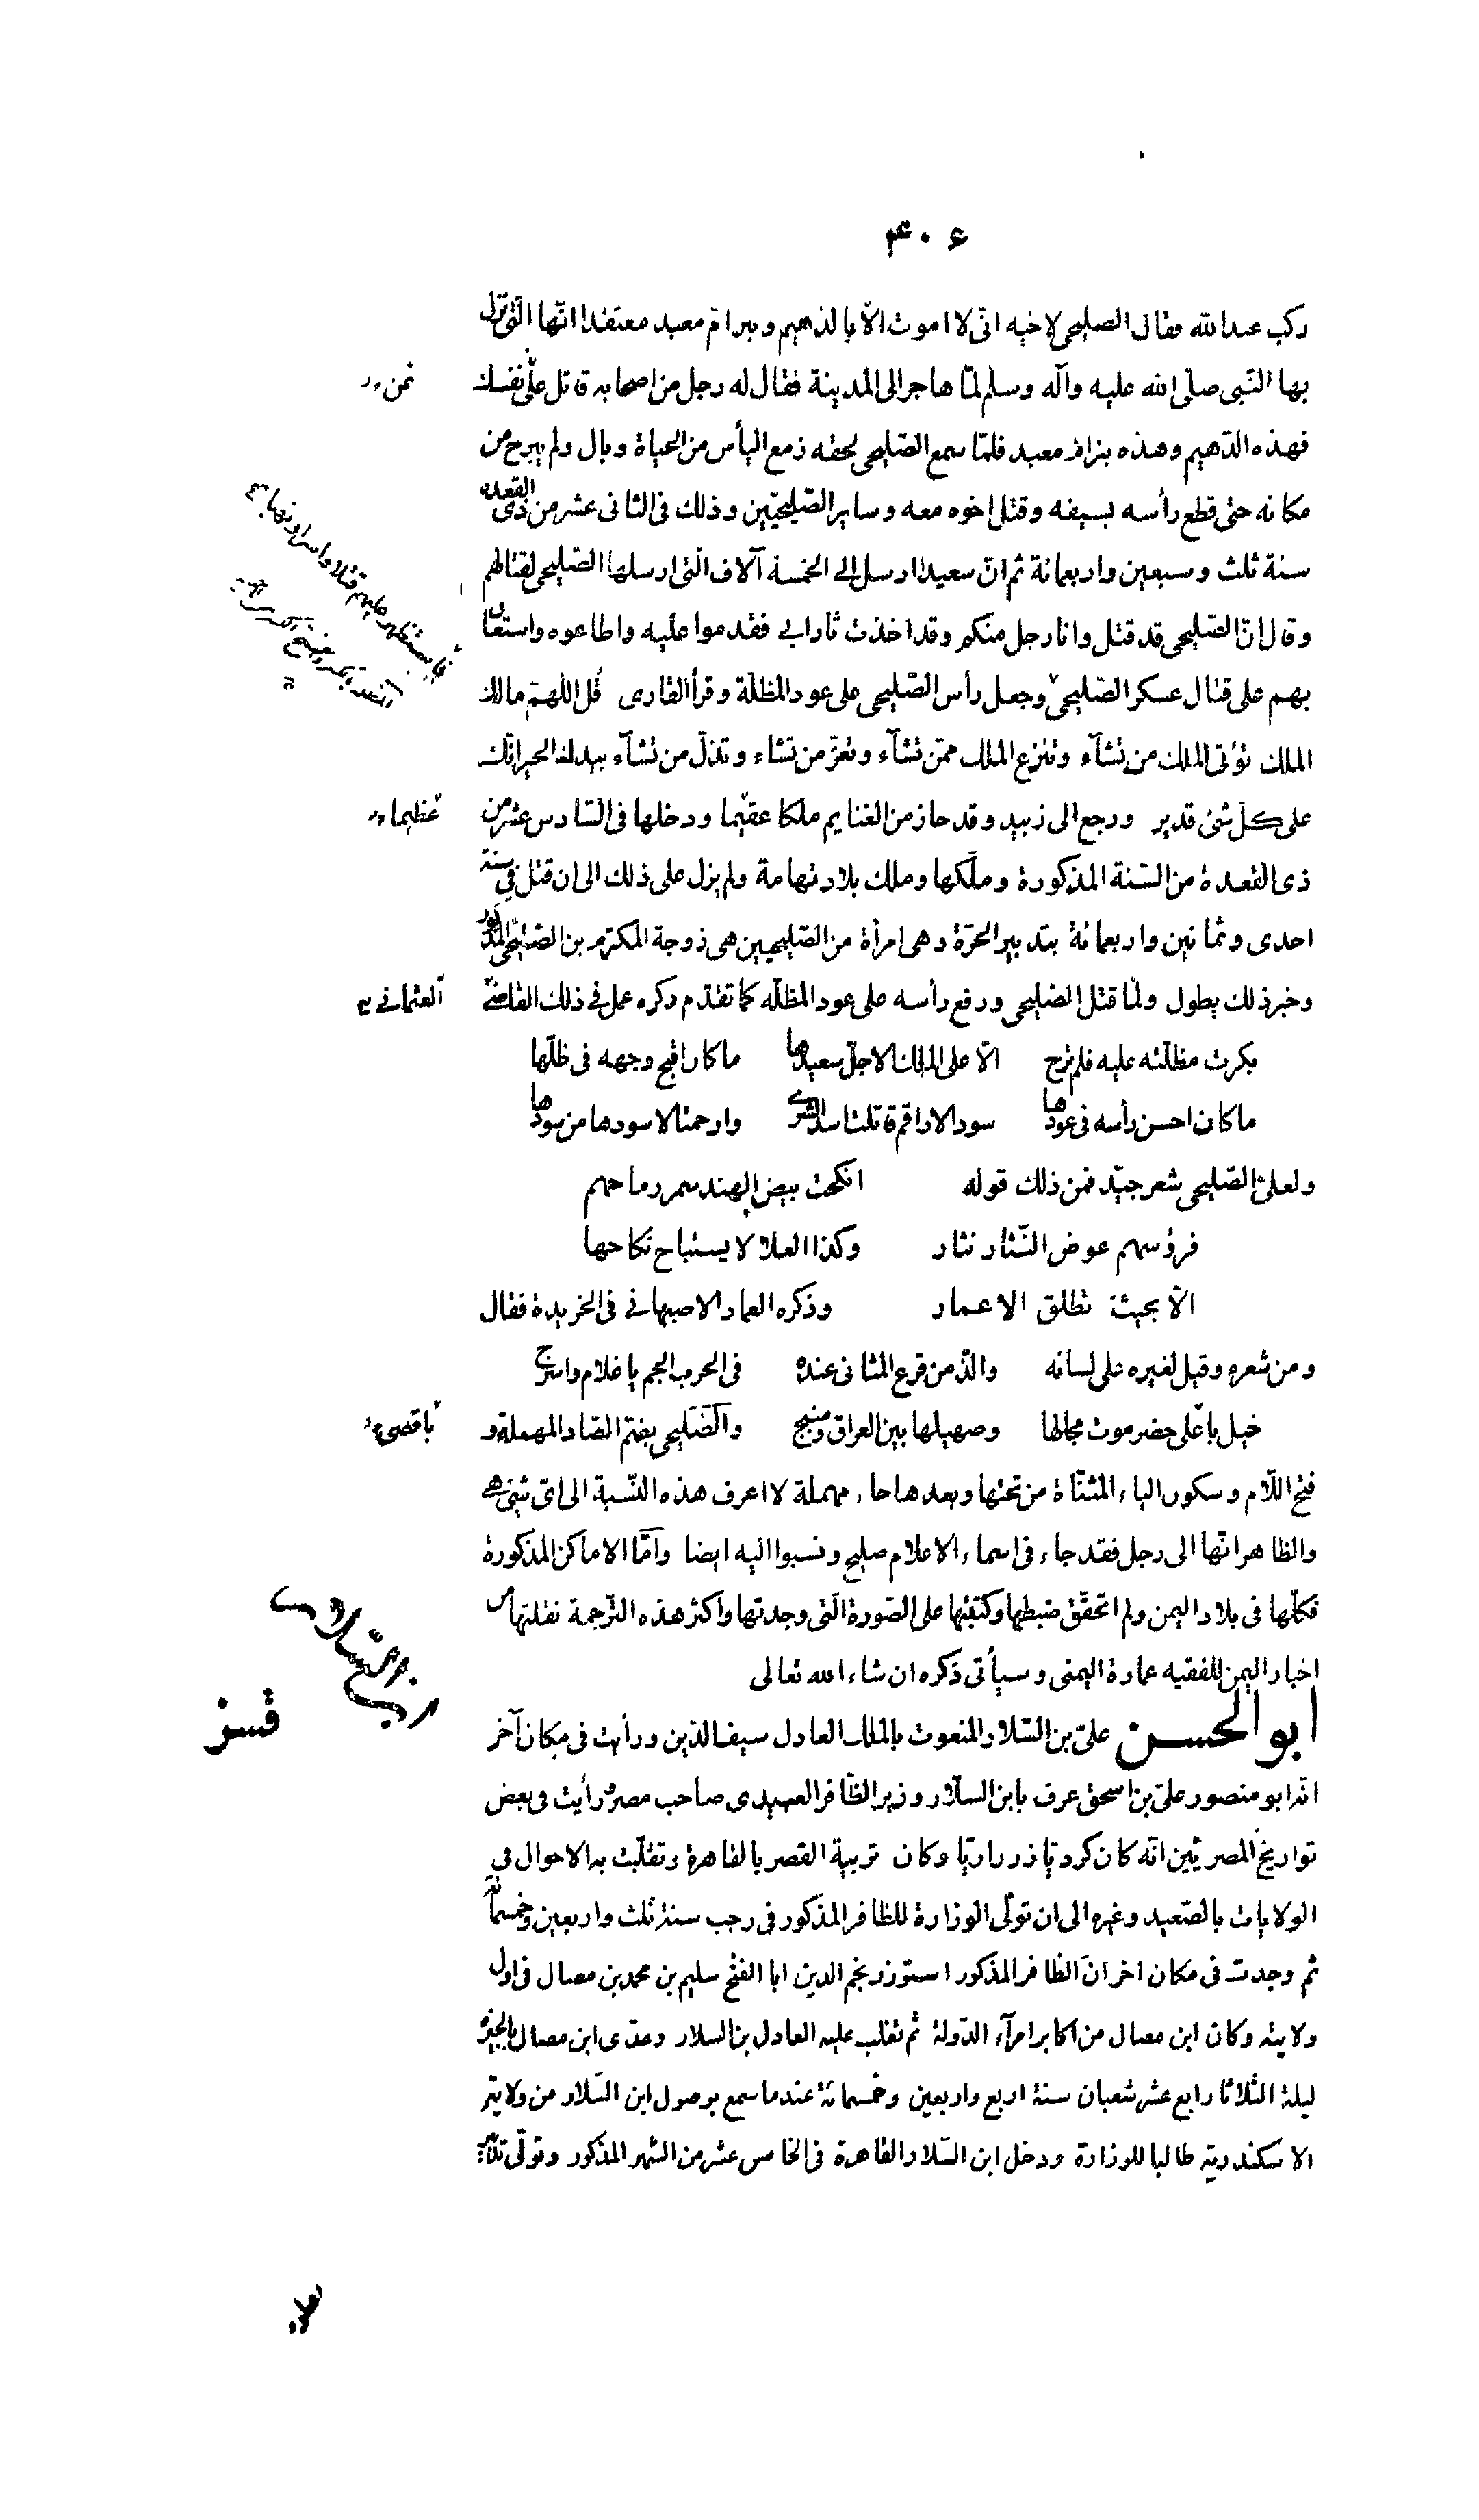 ۴۰۶
ركب عبدالله فقال الصليحى لاخيه انّى لا اموت الّا بالدهيم وببرام معبد معتقدا انّها الّتى نزل
بها النّبى صلّى الله عليه وآله وسلم لمّا هاجر الى المدينة فقال له رجل من اصحابه قاتل علّى نفسك
عن
فهذه الدّهيم وهذه بئرام معبد فلمّا سمع الصّليحى لحقه زمع اليأس من الحياة وبال ولم يبرح من
مكانه حتى قطع رأسه بسيفه وقتل اخوه معه وساير الصّليحيّين وذلك فى الثانى عشر من ذى القعدة
سنة ثلث وسبعين واربعمائة ثم انّ سعيدا ارسل الى الخمسة آلاف الّتى ارسلها الصّليحى لقتالهم
وقال انّ الصّليحى قد قتل وانا رجل منكم وقد اخذت ثار ابى فقدموا عليه واطاعوه واستعان
بهم على قتال عسكر الصّليحى وجعل رأس الصّليحى على عود المظلّة وقرأ القارى قل اللّهمّ مالك
الملك تؤتى الملك من تشآء وتنزع الملك ممّن تشآء وتعزّ من تشاء وتذلّ من تشآء بيدك الخير انّك
على كلّ شئ قدير ورجع الى زبيد وقد حاز من الغنايم ملكا عقيما ودخلها فى السّادس عشر من
عظيما
ذى القعدة من السّنة المذكورة وملّكها وملك بلاد تهامة ولم يزل على ذلك الى ان قتل فى سنة
احدى وثمانين واربعمائة بتدبير الحرّة وهى امرأة من الصّليحيين هى زوجة المكرّم بن الصّليحى المذكور
وخبر ذلك يطول ولمّا قتل الصّليحى ورفع رأسه على عود المظلّه كما تقدّم ذكره عمل فى ذلك القاضى
العثمانى
بكرت مظلّته عليه فلم ترح الّا على الملك الاجلّ سعيدها ما كان اقبح وجهه فى ظلّها
ما كان احسن رأسه فى عودها سود الاراقم قاتلت اسد الشّرى وارحمتا لاسودها من سودها
ولعلىّ الصّليحى شعر جيّد فمن ذلك قوله انكحت بيض الهند سمر رماحهم
فرؤسهم عوض النّثار نثار وكذا العلا لا يستباح نكاحها
الّا بحيث تطلق الاعمار وذكره العماد الاصبهانى فى الخريدة فقال
ومن شعره وقيل لغيره على لسانه والذّ من قرع المثانى عنده فى الحرب الجم يا غلام واسرج
خيل باعلى حضرموت مجالها وصهيلها بين العراق ومنبج والصّليحى بضمّ الصّاد المهملة و
باقصى
فتح اللّام وسكون الياء المثنّاة من تحتها وبعدها حاء مهملة لا اعرف هذه النّسبة الى اىّ شئ هى
والظاهر انّها الى رجل فقد جاء فى اسماء الاعلام صليح ونسبوا اليه ايضا وامّا الاماكن المذكورة
فكلّها فى بلاد اليمن ولم اتحقّق ضبطها وكتبتها على الصّورة الّتى وجدتها واكثر هذه التّرجمة نقلتها من
اخبار اليمن للفقيه عمارة اليمنى وسيأتى ذكره ان شاء الله تعالى
ابن السّلار
ابو الحسن علىّ بن السّلار المنعوت بالملك العادل سيف الدّين ورأيت فى مكان آخر
انّه ابو منصور علىّ بن اسحق عرف بابن السلّار وزير الظّافر العبيدى صاحب مصر رأيت فى بعض
تواريخ المصريّين انّه كان كرديّا زرزاريّا وكان تربية القصر بالقاهرة وتقلّبت به الاحوال فى
الولايات بالصّعيد وغيره الى ان تولّى الوزارة للظافر المذكور فى رجب سنة ثلث واربعين وخمسمائة
ثم وجدت فى مكان اخر انّ الظافر المذكور استوزر نجم الدين ابا الفتح سليم بن محمد بن مصال فى اول
ولايته وكان ابن مصال من اكابر امرآء الدّولة ثم تغلب عليه العادل بن السلار وعدّى ابن مصال الجيزة
ليلة الثلاثا رابع عشر شعبان سنة اربع واربعين وخمسمائة عندما سمع بوصول ابن السّلار من ولاية
الاسكندرية طالبا للوزارة ودخل ابن السّلار القاهرة فى الخامس عشر من الشهر المذكور وتولّى تدبير